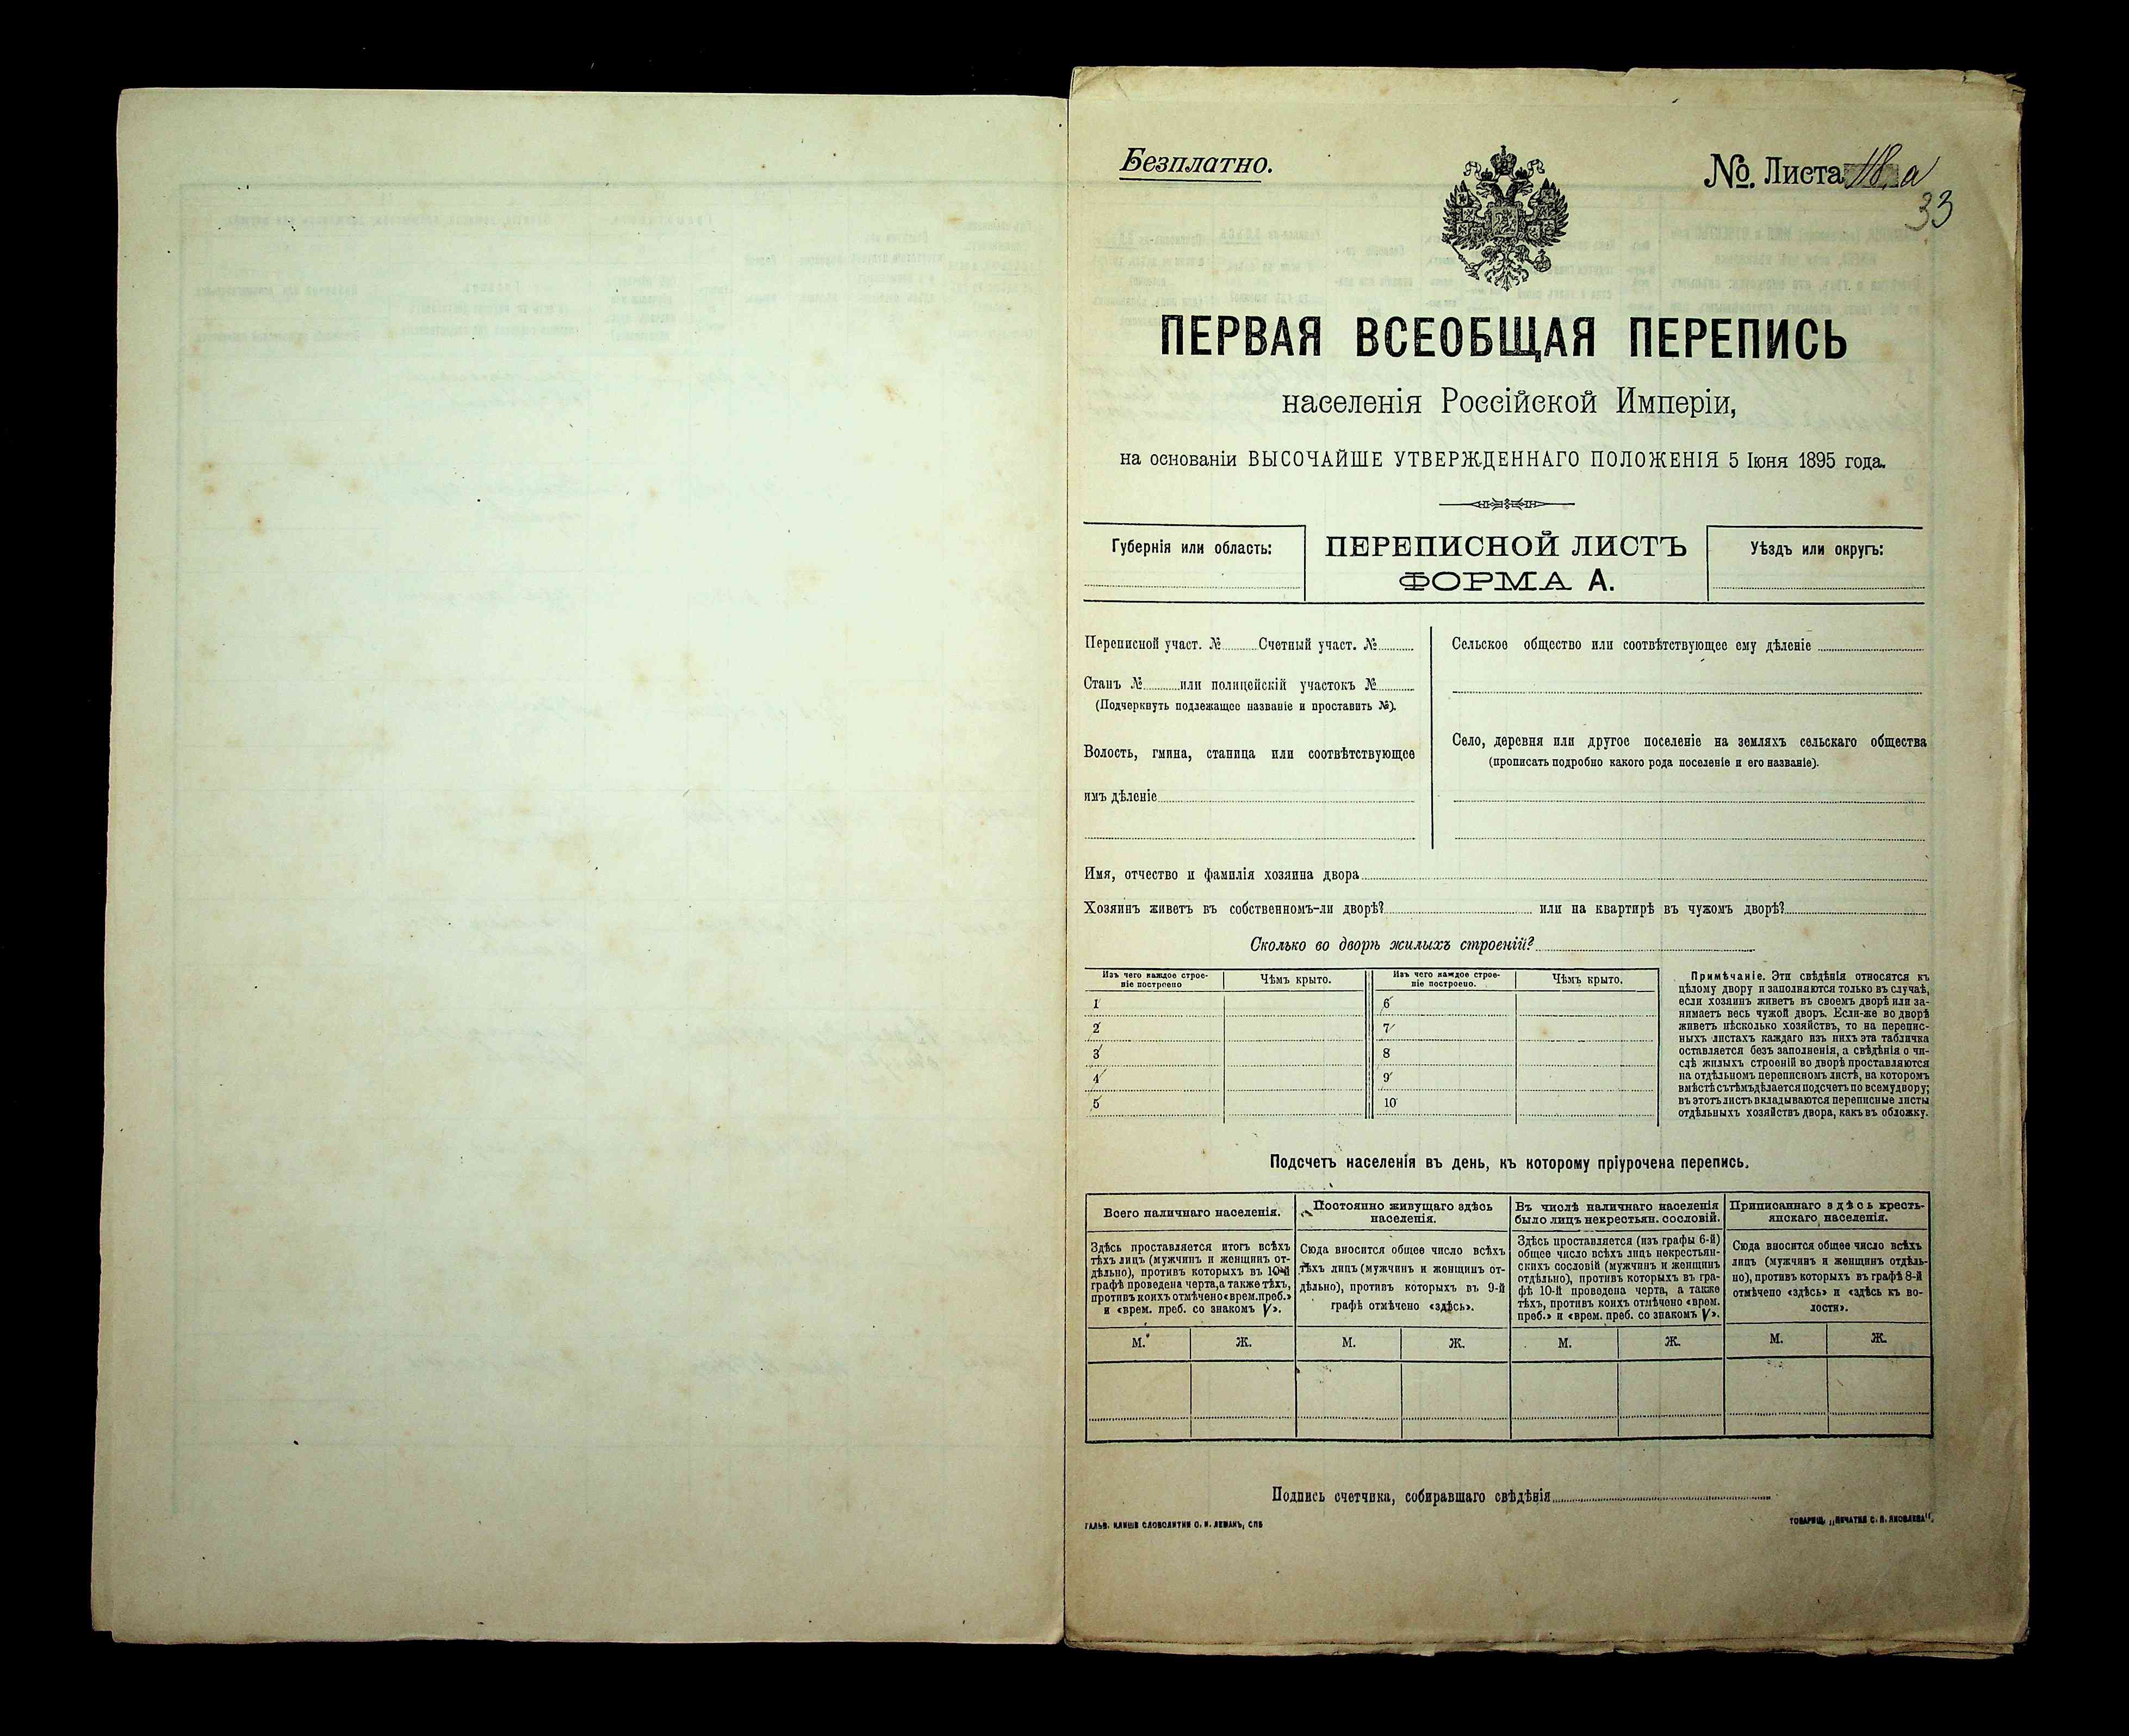 Безплатно.
№. Листа 118. а
33
ПЕРВАЯ ВСЕОБЩАЯ ПЕРЕПИСЬ
населенія Россійской Имперіи,
на основаніи ВЫСОЧАЙШЕ УТВЕРЖДЕННАГО ПОЛОЖЕНІЯ 5 Іюня 1895 года.
Губернія или область:
ПЕРЕПИСНОЙ ЛИСТЪ
ФОРМА А.
Уѣздъ или округъ:
Переписной участ. № Счетный участ. №
Станъ № или полицейскій участокъ №
(Подчеркнуть подлежащее названіе и проставить №).
Волость, гмина, станица или соотвѣтствующее
имъ дѣленіе
Сельское общество или соотвѣтствующее ему дѣленіе
Село, деревня или другое поселеніе на земляхъ сельскаго общества
(прописать подробно какого рода поселеніе и его названіе).
Имя, отчество и фамилія хозяина двора
Хозяинъ живетъ въ собственномъ-ли дворѣ? или на квартирѣ въ чужомъ дворѣ?
Сколько во дворѣ жилыхъ строеній?
Изъ чего каждое строе-
ніе построено
Чѣмъ крыто.
Изъ чего каждое строе-
ніе построено.
Чѣмъ крыто.
1 6
2 7
3 8
4 9
5 10
Примѣчаніе. Эти свѣдѣнія относятся къ
цѣлому двору и заполняются только въ случаѣ,
если хозяинъ живетъ въ своемъ дворѣ или за-
нимаетъ весь чужой дворъ. Если-же во дворѣ
живетъ нѣсколько хозяйствъ, то на перепис-
ныхъ листахъ каждаго изъ нихъ эта табличка
оставляется безъ заполненія, а свѣдѣнія о чи-
слѣ жилыхъ строеній во дворѣ проставляются
на отдѣльномъ переписномъ листѣ, на которомъ
вмѣстѣ съ тѣмъ дѣлается подсчетъ по всему двору;
въ этотъ листъ вкладываются переписные листы
отдѣльныхъ хозяйствъ двора, какъ въ обложку.
Подсчетъ населенія въ день, къ которому пріурочена перепись.
Всего наличнаго населенія.
Здѣсь проставляется итогъ всѣхъ
тѣхъ лицъ (мужчинъ и женщинъ от-
дѣльно), противъ которыхъ въ 10-й
графѣ проведена черта, а также тѣхъ,
противъ коихъ отмѣчено «врем. преб.»
и «врем. преб. со знакомъ V».
Постоянно живущаго здѣсь
населенія.
Сюда вносится общее число всѣхъ
тѣхъ лицъ (мужчинъ и женщинъ от-
дѣльно), противъ которыхъ въ 9-й
графѣ отмѣчено «здѣсь».
Въ числѣ наличнаго населенія
было лицъ некрестьян. сословій.
Здѣсь проставляется (изъ графы 6-й)
общее число всѣхъ лицъ некрестьян-
скихъ сословій (мужчинъ и женщинъ
отдѣльно), противъ которыхъ въ гра-
фѣ 10-й проведена черта, а также
тѣхъ, противъ коихъ отмѣчено «врем.
преб.» и «врем. преб. со знакомъ V».
Приписаннаго здѣсь кресть-
янскаго населенія.
Сюда вносится общее число всѣхъ
лицъ (мужчинъ и женщинъ отдѣль-
но), противъ которыхъ въ графѣ 8-й
отмѣчено «здѣсь» и «здѣсь къ во-
лости».
М. Ж. М. Ж. М. Ж. М. Ж.
Подпись счетчика, собиравшаго свѣдѣнія
ГАЛЬВ. КЛИШЕ СЛОВОЛИТНИ О. И. ЛЕМАНЪ, СПБ
ТОВАРИЩ. „ПЕЧАТНЯ С. П. ЯКОВЛЕВА".